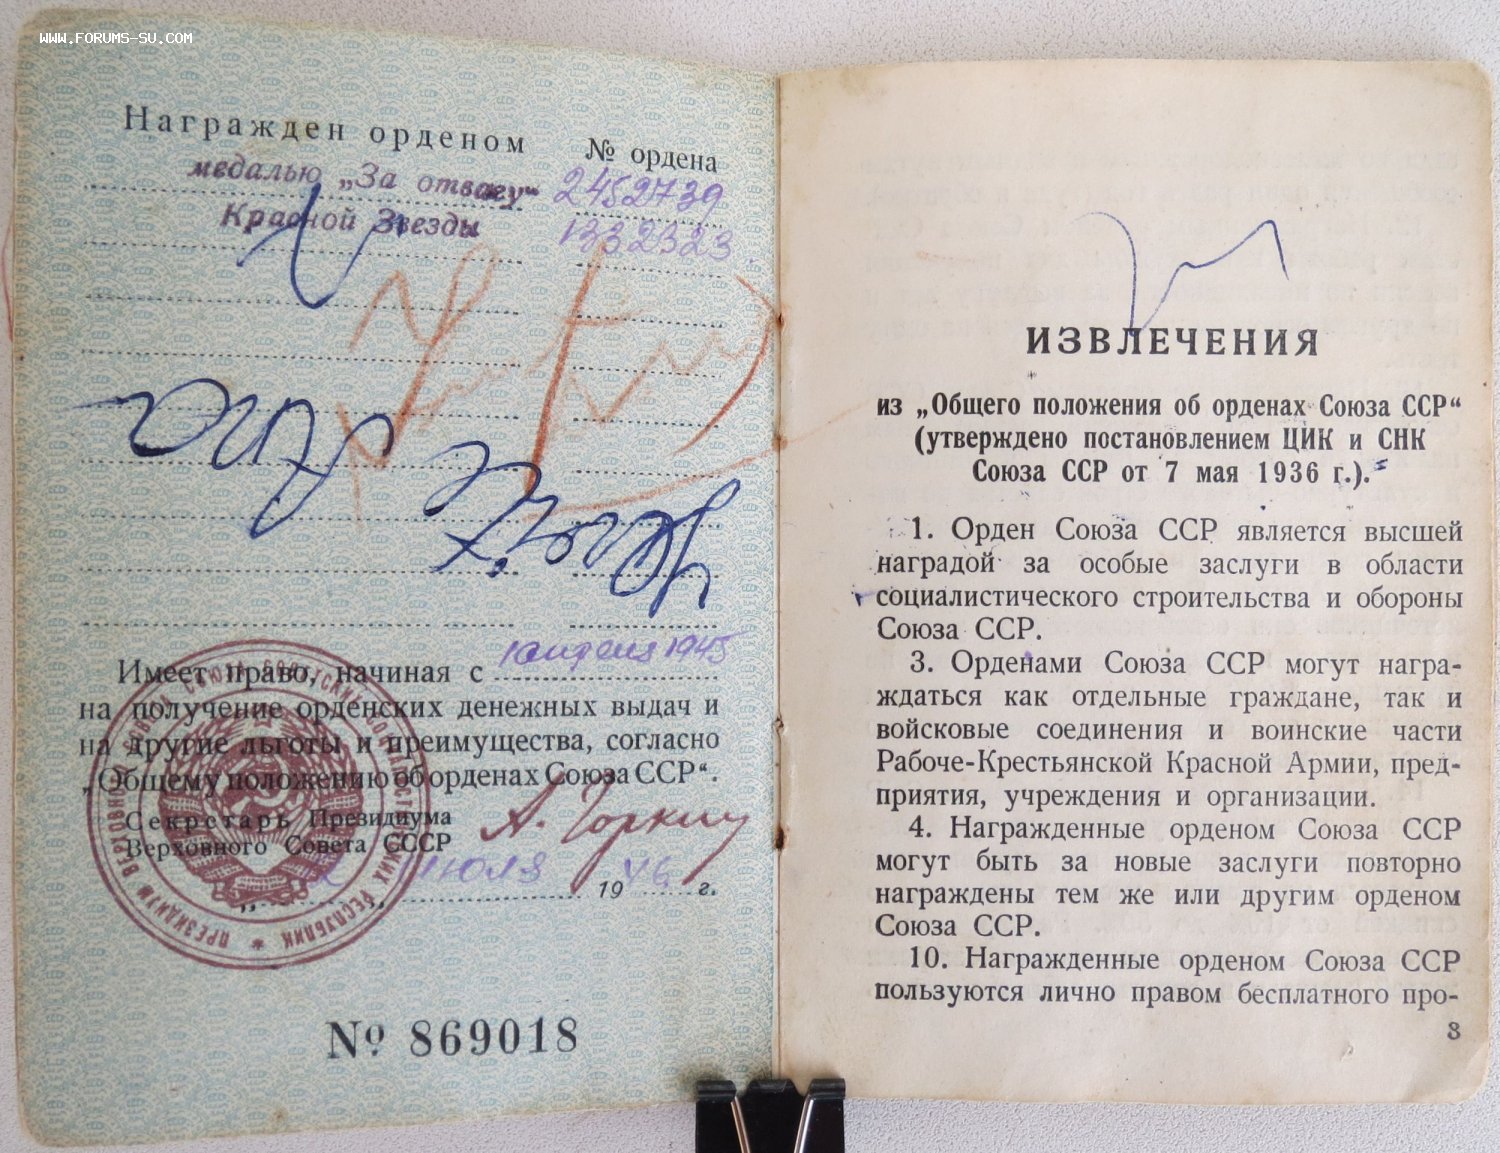 www.forums-su.com
Награжден орденом
№ ордена
медалью „За отвагу“ 2452739
Красной Звезды 1332323
Имеет право, начиная с 1 апреля 1945
на получение орденских денежных выдач и
на другие льготы и преимущества, согласно
„Общему положению об орденах Союза ССР“.
Секретарь Президиума
Верховного Совета СССР
А. Горкин
июля 1946 г.
ПРЕЗИДИУМ ВЕРХОВНОГО СОВЕТА СОЮЗА СОВЕТСКИХ СОЦИАЛИСТИЧЕСКИХ РЕСПУБЛИК
№ 869018
ИЗВЛЕЧЕНИЯ
из „Общего положения об орденах Союза ССР“
(утверждено постановлением ЦИК и СНК
Союза ССР от 7 мая 1936 г.).
1. Орден Союза ССР является высшей
наградой за особые заслуги в области
социалистического строительства и обороны
Союза ССР.
3. Орденами Союза ССР могут награ-
ждаться как отдельные граждане, так и
войсковые соединения и воинские части
Рабоче-Крестьянской Красной Армии, пред-
приятия, учреждения и организации.
4. Награжденные орденом Союза ССР
могут быть за новые заслуги повторно
награждены тем же или другим орденом
Союза ССР.
10. Награжденные орденом Союза ССР
пользуются лично правом бесплатного про-
3